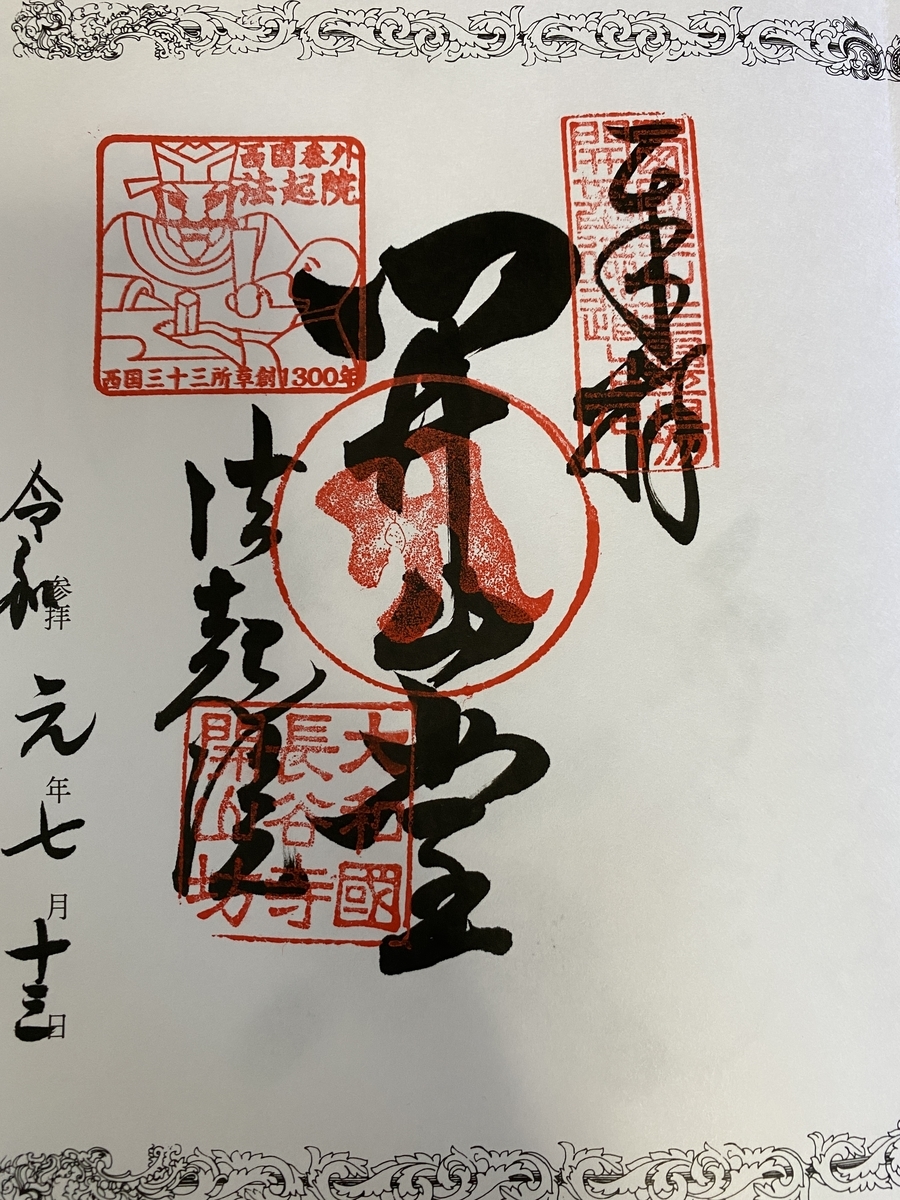 奉拝
開山堂
西国番外
法起院
西国三十三所草創1300年
法起院
大和國
長谷寺
開山坊
参拝
令和元年七月十三日